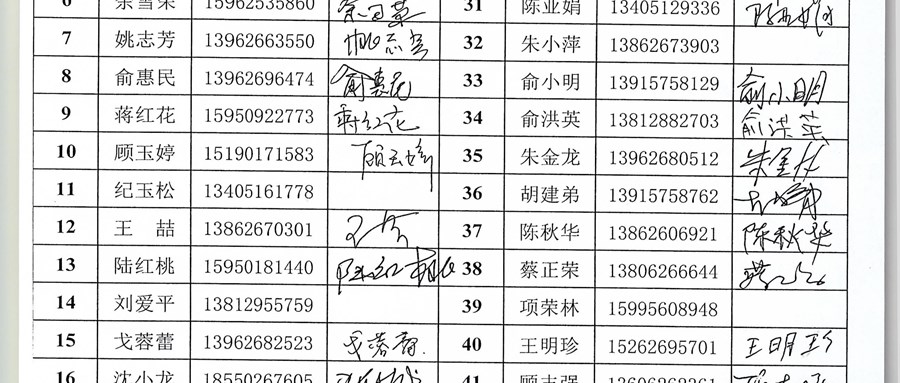 6 余雪荣 15962535860 31 陈亚娟 13405129336
7 姚志芳 13962663550 姚志芳 32 朱小萍 13862673903
8 俞惠民 13962696474 俞惠民 33 俞小明 13915758129 俞小明
9 蒋红花 15950922773 蒋红花 34 俞洪英 13812882703 俞洪英
10 顾玉婷 15190171583 顾玉婷 35 朱金龙 13962680512 朱金龙
11 纪玉松 13405161778 36 胡建弟 13915758762
12 王 喆 13862670301 王喆 37 陈秋华 13862606921 陈秋华
13 陆红桃 15950181440 陆红桃 38 蔡正荣 13806266644
14 刘爱平 13812955759 39 项荣林 15995608948
15 戈蓉蕾 13962682523 戈蓉蕾 40 王明珍 15262695701 王明珍
16 沈小龙 18550267605 41 顾志强